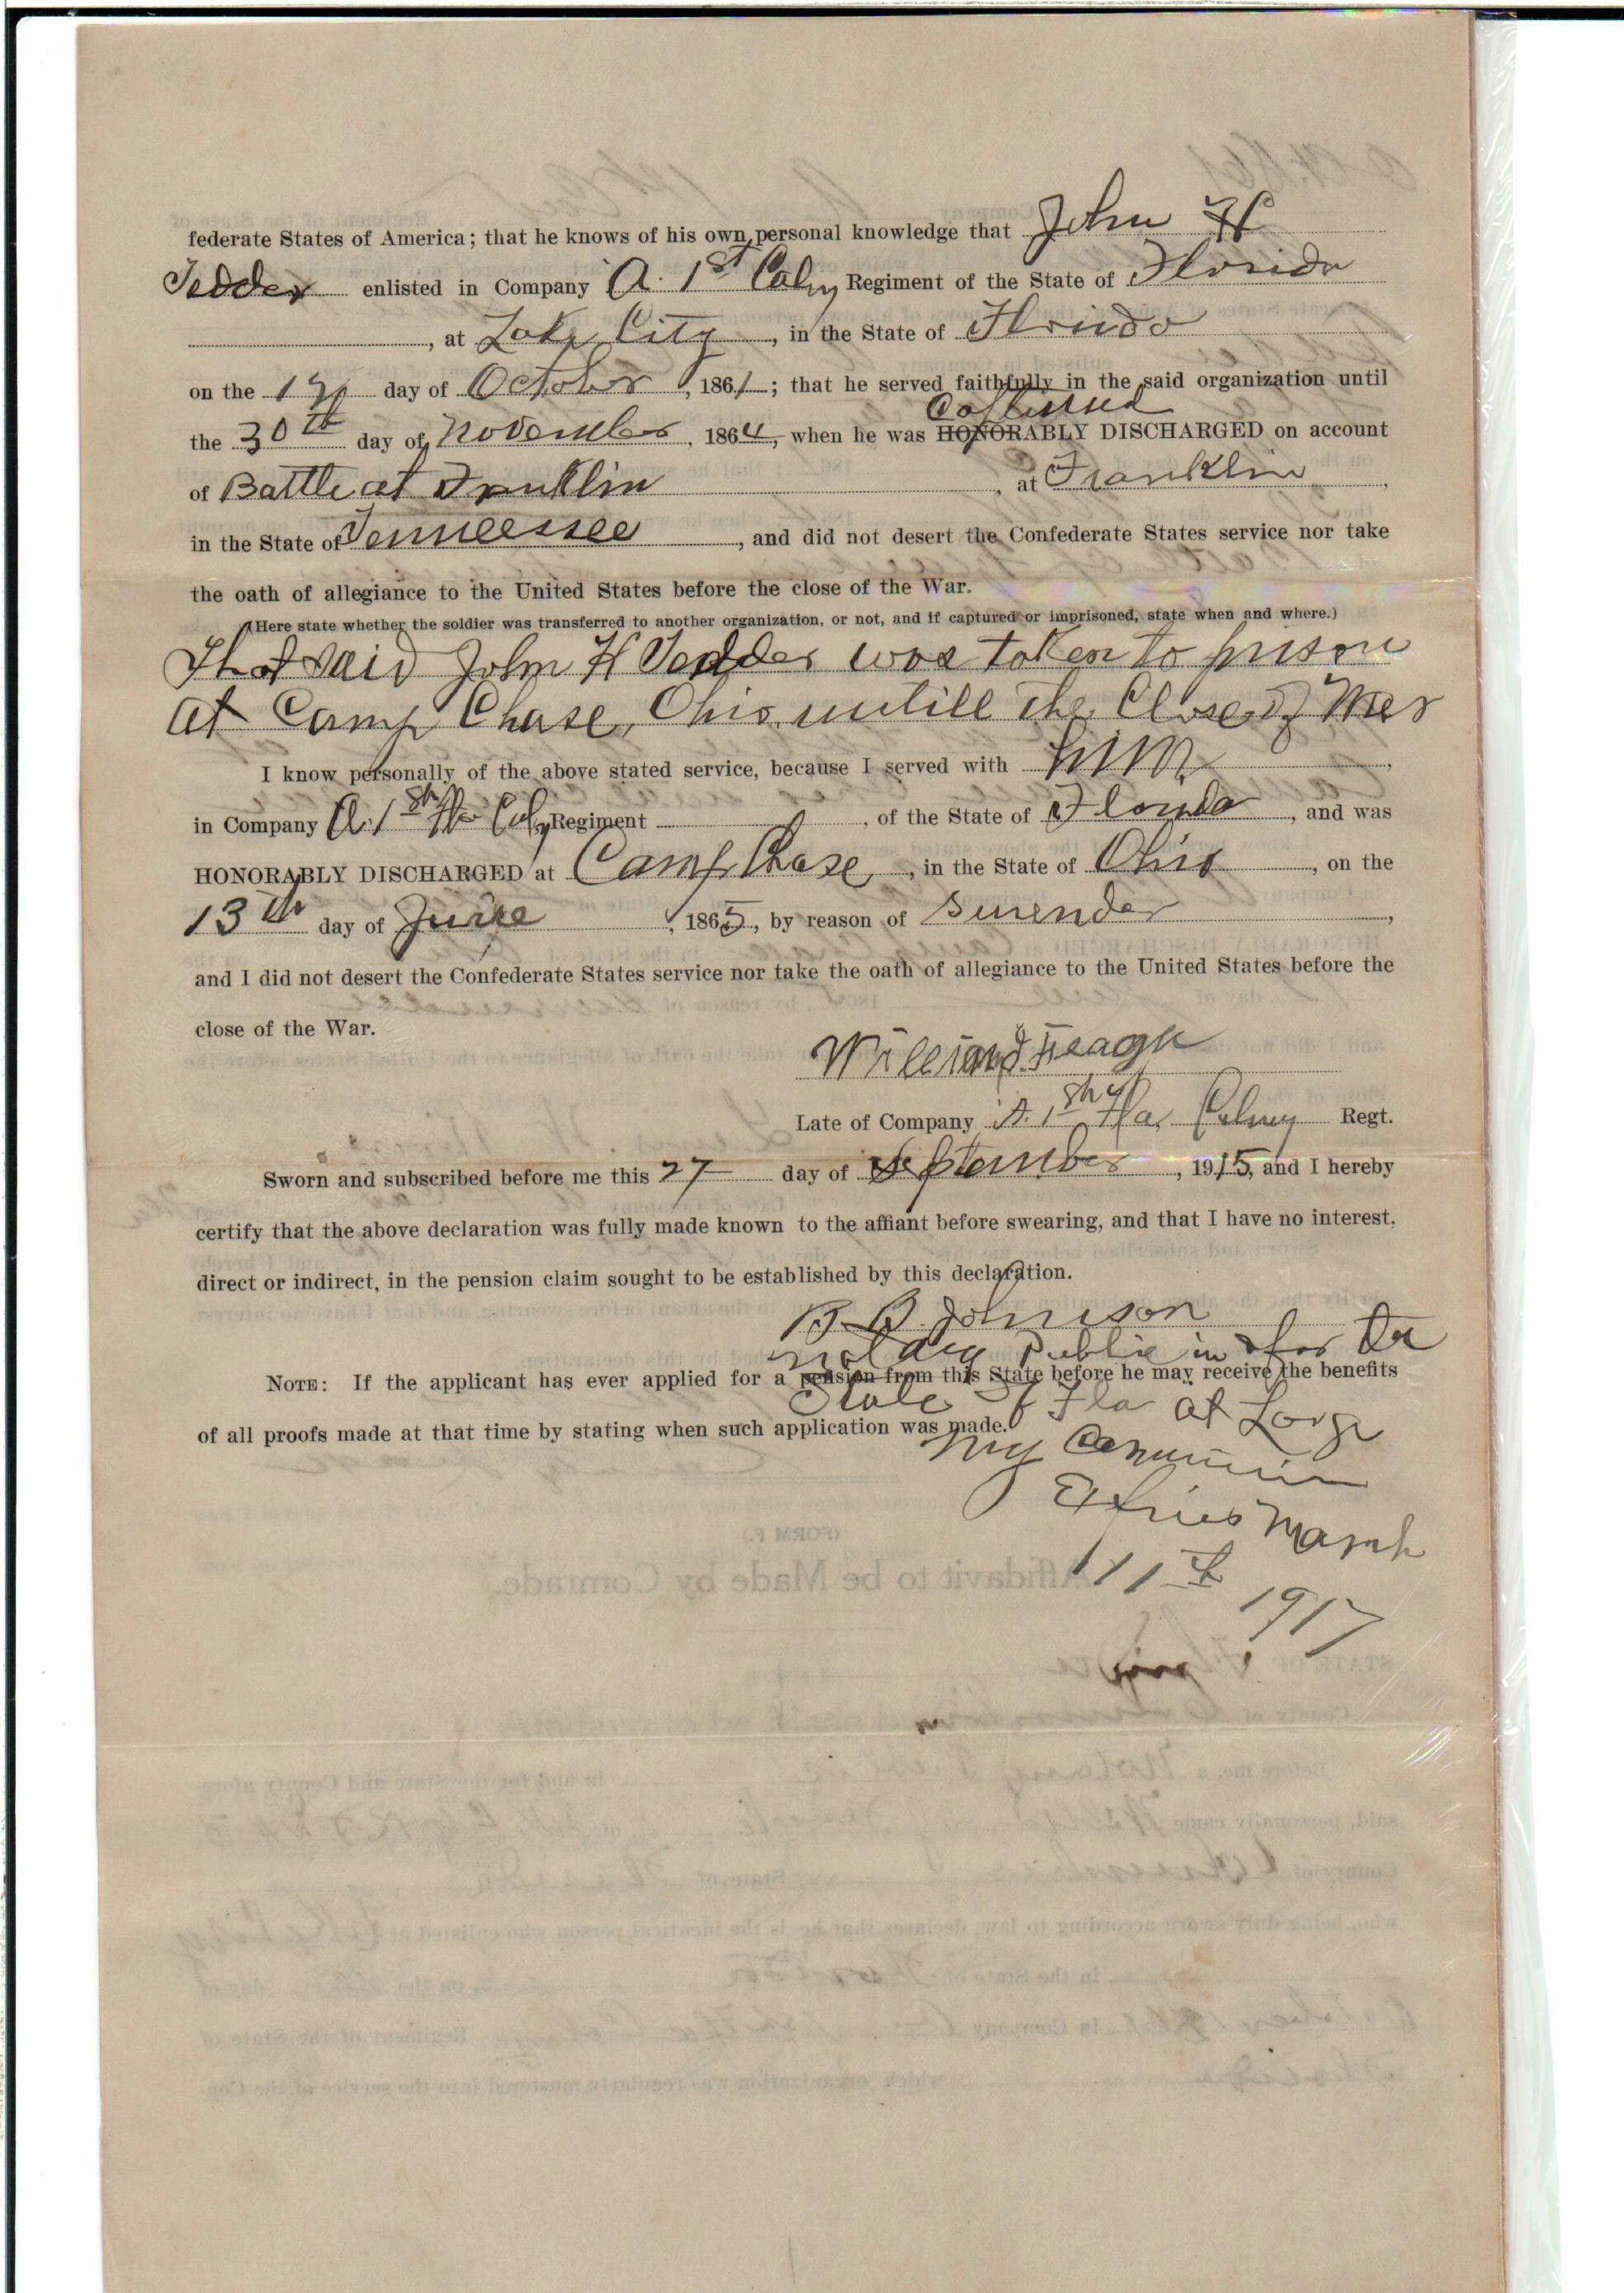 federate States of America; that he knows of his own personal knowledge that John H
Tedder enlisted in Company A. 1st Calvy Regiment of the State of Florida
, at Lake City, in the State of Florida
on the day of October, 1861; that he served faithfully in the said organization until
Captured
the 30th day of November, 1864, when he was HONORABLY DISCHARGED on account
of Battle at Franklin, at Franklin,
in the State of Tennessee, and did not desert the Confederate States service nor take
the oath of allegiance to the United States before the close of the War.
(Here state whether the soldier was transferred to another organization, or not, and if captured or imprisoned, state when and where.)
That said John H Tedder was taken to prison
at Camp Chase, Ohio, untill the Close of
I know personally of the above stated service, because I served with him,
in Company A. 1st Fla Calvy Regiment, of the State of Florida, and was
HONORABLY DISCHARGED at Camp Chase, in the State of Ohio, on the
13th day of June, 1865, by reason of surender,
and I did not desert the Confederate States service nor take the oath of allegiance to the United States before the
close of the War.
William Feagle
Late of Company A. 1st Fla. Calvry Regt.
Sworn and subscribed before me this 27 day of September, 1915, and I hereby
certify that the above declaration was fully made known to the affiant before swearing, and that I have no interest,
direct or indirect, in the pension claim sought to be established by this declaration.
B. B. Johnson
Notary Public in & for the
NOTE: If the applicant has ever applied for a pension from this State before he may receive the benefits
State of Fla at Large
of all proofs made at that time by stating when such application was made.
My Commission
Expires March
11th
1917